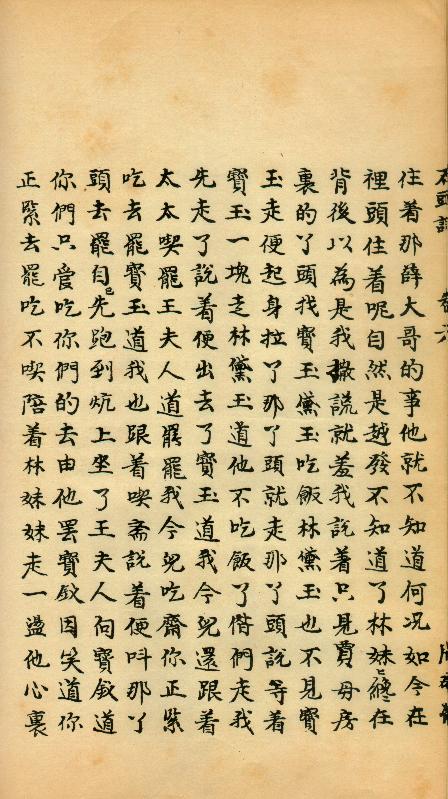 石頭記 卷六
住着那薛大哥的事他就不知道何况如今在
裡頭住着呢自然是越發不知道了林妹〻纔在
背後以為是我撒謊就羞我說着只見賈母房
裏的丫頭找寳玉黛玉吃飯林黛玉也不見寳
玉走便起身拉了那丫頭就走那丫頭說等着
寳玉一塊走林黛玉道他不吃飯了偺們走我
先走了說着便出去了寳玉道我今兒還跟着
太太喫罷王夫人道罷罷我今兒吃齋你正緊
吃去罷寳玉道我也跟着喫齋說着便呌那丫
頭去罷自己先跑到炕上坐了王夫人向寳釵道
你們只管吃你們的去由他罷寳釵因笑道你
正緊去罷吃不喫陪着林妹妹走一盪他心裏